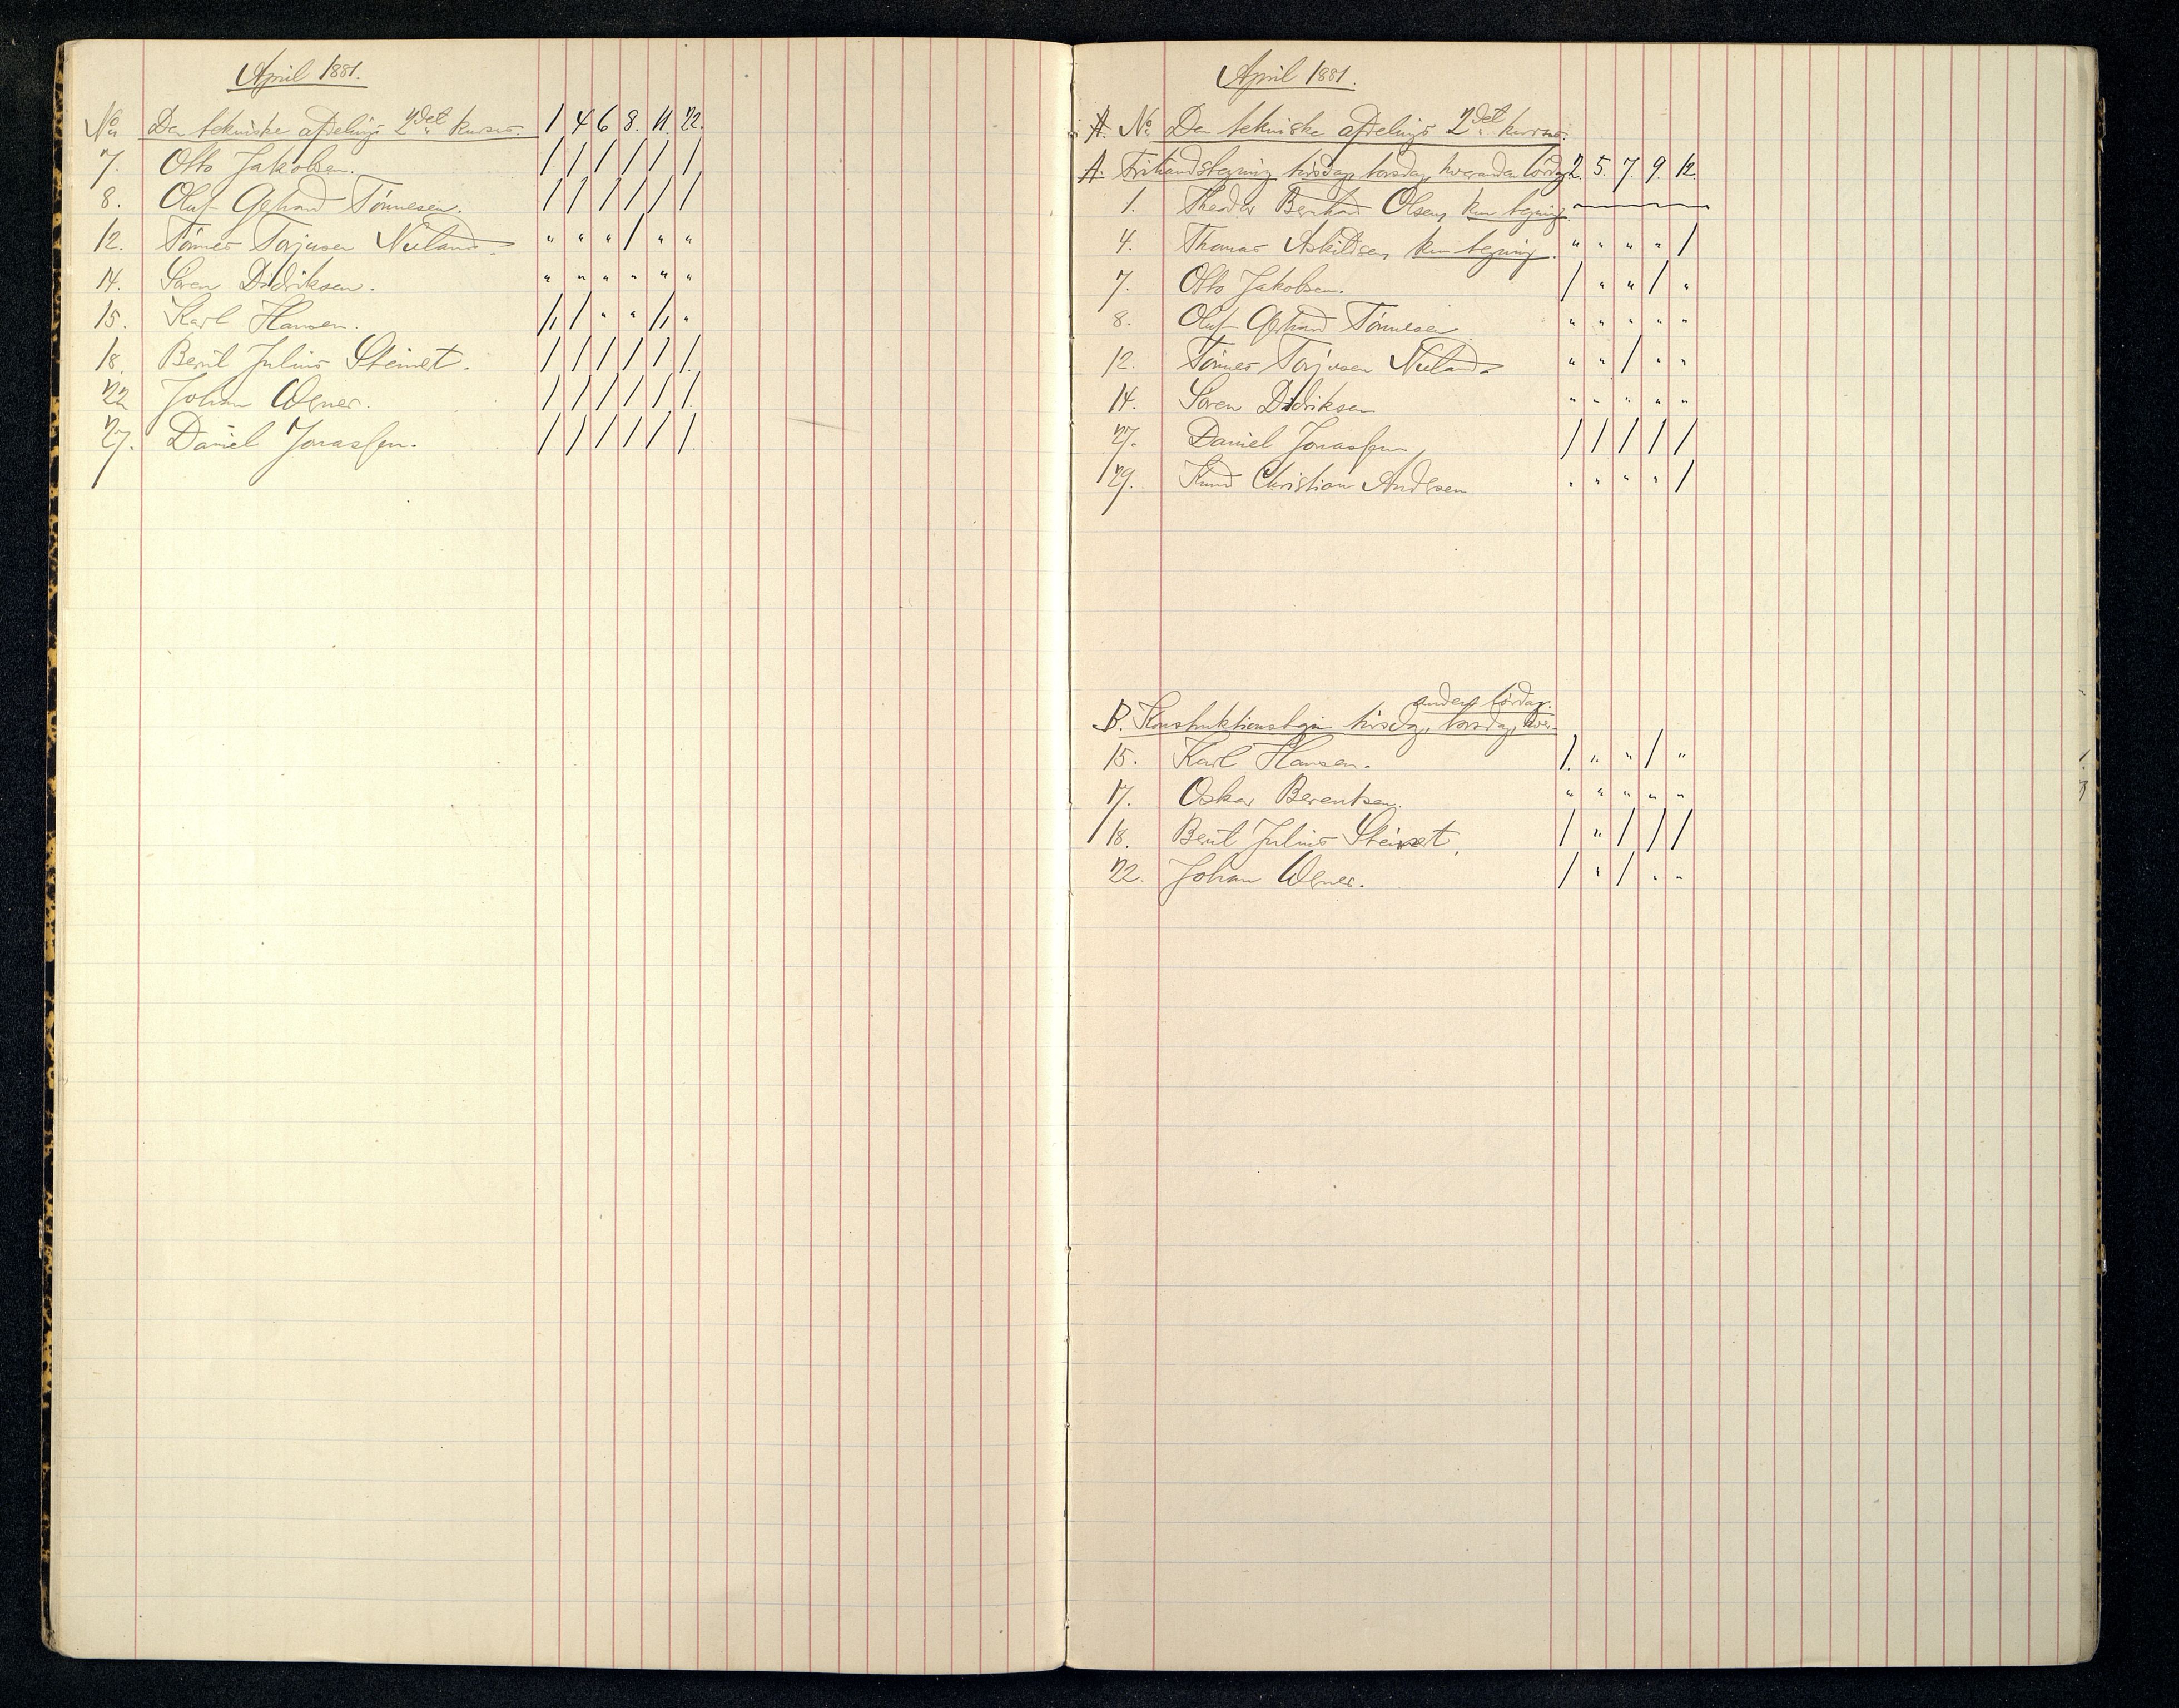 April 1881.
No. Den tekniske afdelings 2det kursus. 1 4 6 8. 11. 22.
7. Otto Jakobsen. / / / / / /
8. Oluf Gerhard Tönnesen. / / / / / /
12. Tönnes Torjusen Nuland. " " " / " "
14. Sören Didriksen. " " " " " "
15. Karl Hansen. / / " " / "
18. Bernt Julius Steinert. / / / / / /
22 Johan Wgner. / / / / / /
27. Daniel Jonassen. / / / / / /
April 1881.
A. No. Den tekniske afdelings 2det kursus.
A. Frihåndstegning tirsdag, torsdag, hveranden lördag 2. 5. 7. 9. 12.
1. Theodor Bernhard Olsen, kun tegning.
4. Thomas Askildsen, kun tegning. " " " " /
7. Otto Jakobsen. / " " / "
8. Oluf Gerhard Tönnesen " " " " "
12. Tönnes Torjusen Nuland " " / " "
14. Sören Didriksen " " " " "
27. Daniel Jonassen / / / / /
29. Knud Christian Andersen " " " " /
anden lördag.
B. Konstruktionstegn. tirsdag, torsdag, hver-
15. Karl Hansen. / " " / "
17. Oskar Berentsen. " " " " "
18. Bernt Julius Steinert. / " / / /
22. Johan Wgner. / " / " "